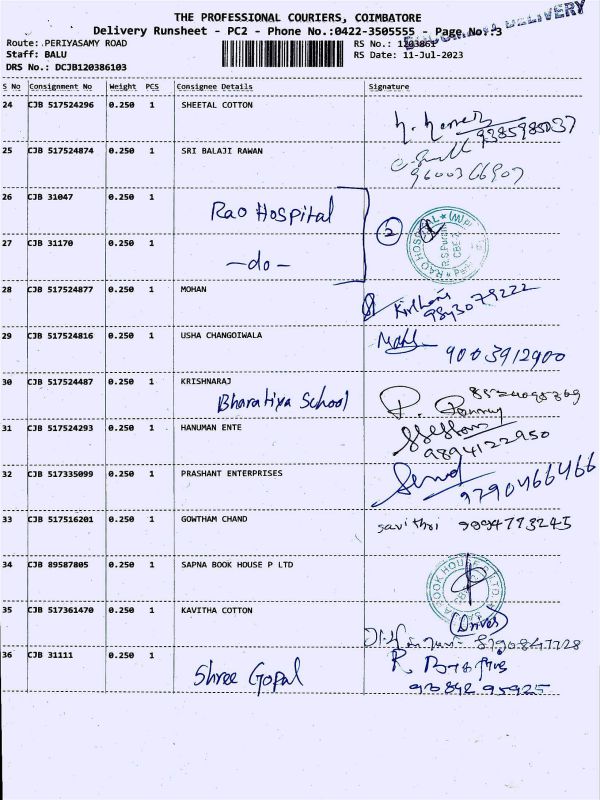 THE PROFESSIONAL COURIERS, COIMBATORE
Delivery Runsheet - PC2 - Phone No.:0422-3505555 - Page No.:3
DELIVERY
Route: PERIYASAMY ROAD
RS No.: 1203861
Staff: BALU
RS Date: 11-Jul-2023
DRS No.: DCJB120386103
S No Consignment No Weight PCS Consignee Details Signature
24 CJB 517524296 0.250 1 SHEETAL COTTON
9385985037
25 CJB 517524874 0.250 1 SRI BALAJI RAWAN
9600366907
26 CJB 31047 0.250 1
Rao Hospital
2
RAO HOSPITAL
27 CJB 31170 0.250 1
-do-
28 CJB 517524877 0.250 1 MOHAN
9843079222
29 CJB 517524816 0.250 1 USHA CHANGOIWALA
9003912900
30 CJB 517524487 0.250 1 KRISHNARAJ
Bharatiya School
31 CJB 517524293 0.250 1 HANUMAN ENTE
9894122950
32 CJB 517335099 0.250 1 PRASHANT ENTERPRISES
9790466466
33 CJB 517516201 0.250 1 GOWTHAM CHAND
savithri 9894773245
34 CJB 89587805 0.250 1 SAPNA BOOK HOUSE P LTD
BOOK HOUSE
35 CJB 517361470 0.250 1 KAVITHA COTTON
(Driver)
8790847728
36 CJB 31111 0.250 1
Shree Gopal
R